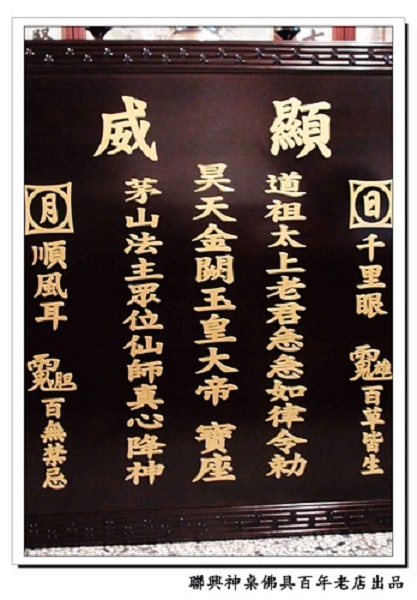 顯威
日
千里眼
雄
百草皆生
道祖太上老君急急如律令勅
昊天金闕玉皇大帝 寶座
茅山法主眾位仙師真心降神
月
順風耳
胆
百無禁忌
聯興神桌佛具百年老店出品